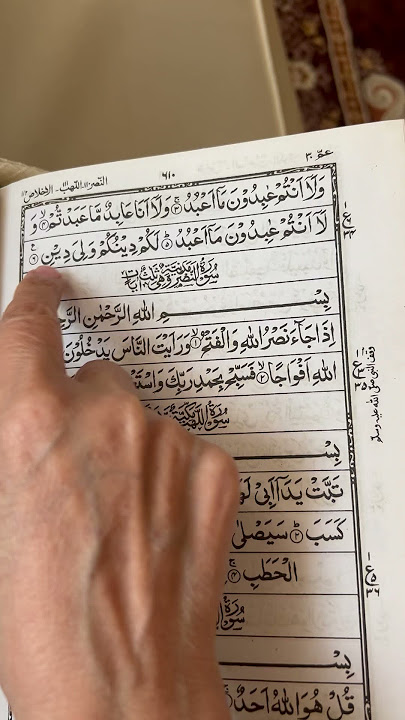 النصر ١١٠ اللهب ١١١ الاخلاص ١١٢
٦١٠
عمّ ٣٠
وَلَآ اَنْتُمْ عٰبِدُوْنَ مَآ اَعْبُدُ ۚ﴿۳﴾ وَلَآ اَنَا عَابِدٌ مَّا عَبَدْتُّمْ ۙ﴿۴﴾ وَ
لَآ اَنْتُمْ عٰبِدُوْنَ مَآ اَعْبُدُ ؕ﴿۵﴾ لَكُمْ دِيْنُكُمْ وَلِيَ دِيْنِ ﴿۶﴾
سُوْرَةُ النَّصْرِ مَدَنِيَّةٌ وَّهِيَ ثَلٰثُ اٰيَاتٍ
بِسْمِ اللهِ الرَّحْمٰنِ
اِذَا جَآءَ نَصْرُ اللهِ وَالْفَتْحُ ۙ﴿۱﴾ وَرَاَيْتَ النَّاسَ يَدْخُلُوْنَ
اللهِ اَفْوَاجًا ۙ﴿۲﴾ فَسَبِّحْ بِحَمْدِ رَبِّكَ
سُوْرَةُ اللَّهَبِ مَكِّيَّةٌ
بِسْ
تَبَّتْ يَدَآ اَبِيْ
كَسَبَ ؕ﴿۲﴾ سَيَصْلٰى
الْحَطَبِ ۚ﴿۴﴾
سُوْرَةُ
بِسْ
قُلْ هُوَ اللهُ اَحَدٌ
وقف النبي صلى الله عليه وسلم